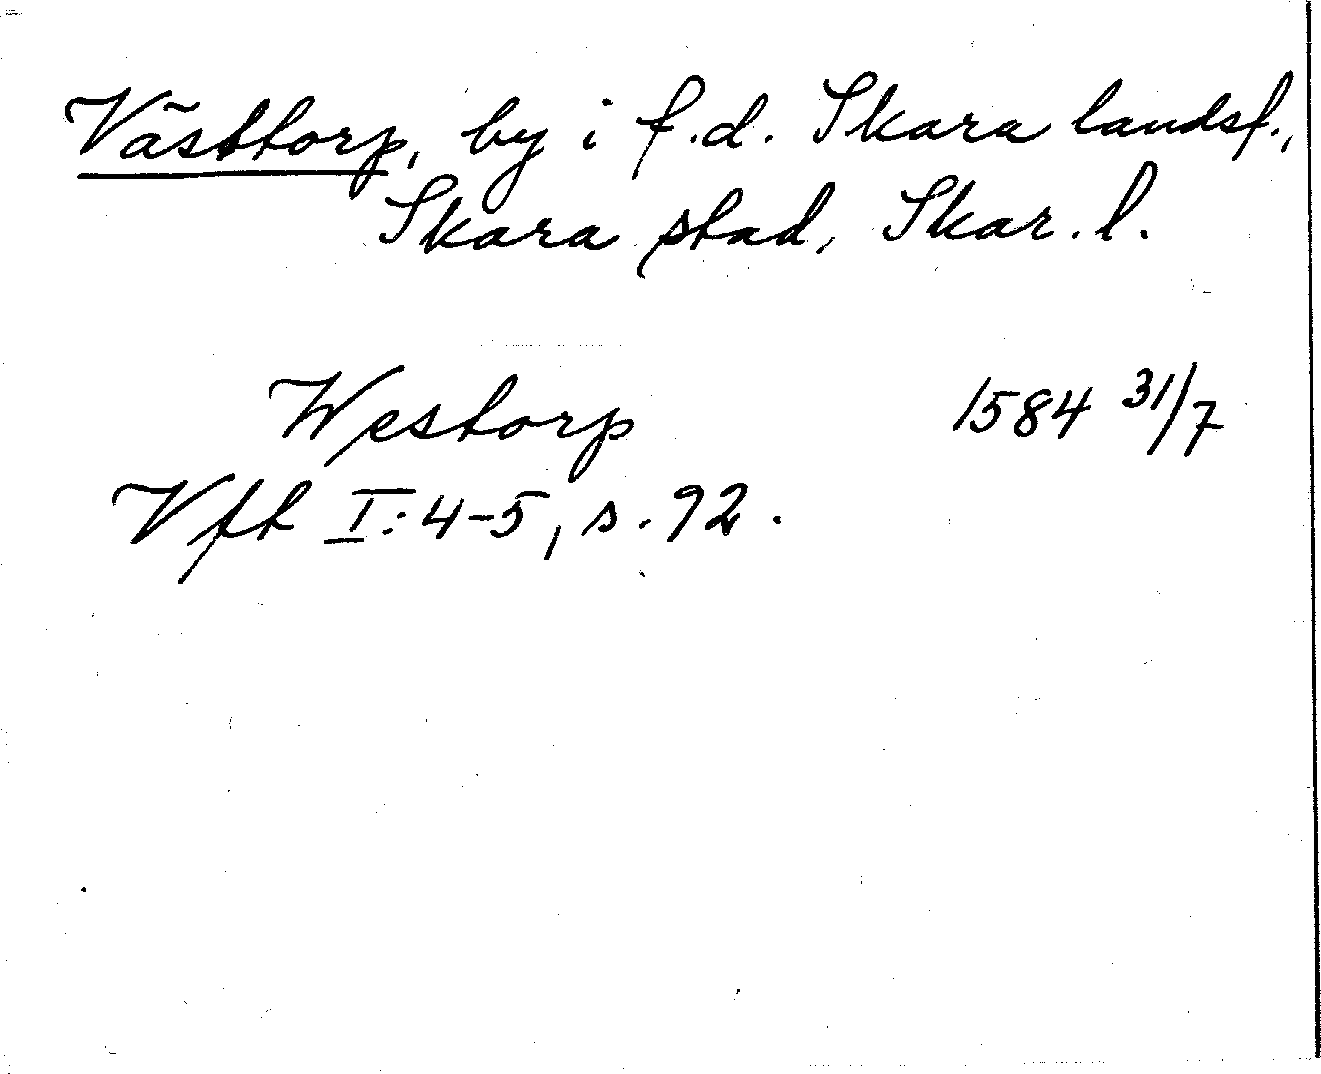 Västtorp, by i f.d. Skara landsf.,
Skara stad, Skar. l.
Westorp 1584 31/7
Vft I: 4-5, s. 92.